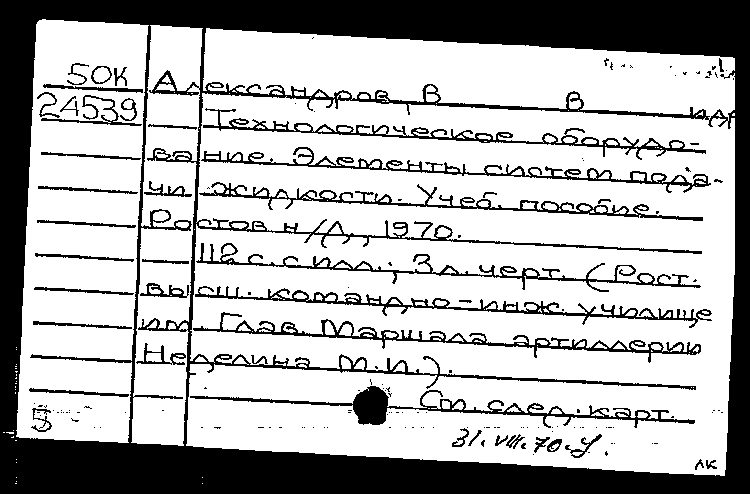 50К Александров, В В и др
24539 Технологическое оборудо-
вание. Элементы систем пода-
чи жидкости. Учеб. пособие.
Ростов н/Д., 1970.
112 с. с илл.; 3 л. черт. (Рост.
высш. командно-инж. училище
им. Глав. Маршала артиллерии
Неделина М.И.).
См. след. карт.
5
31.VIII.70.У.
лк